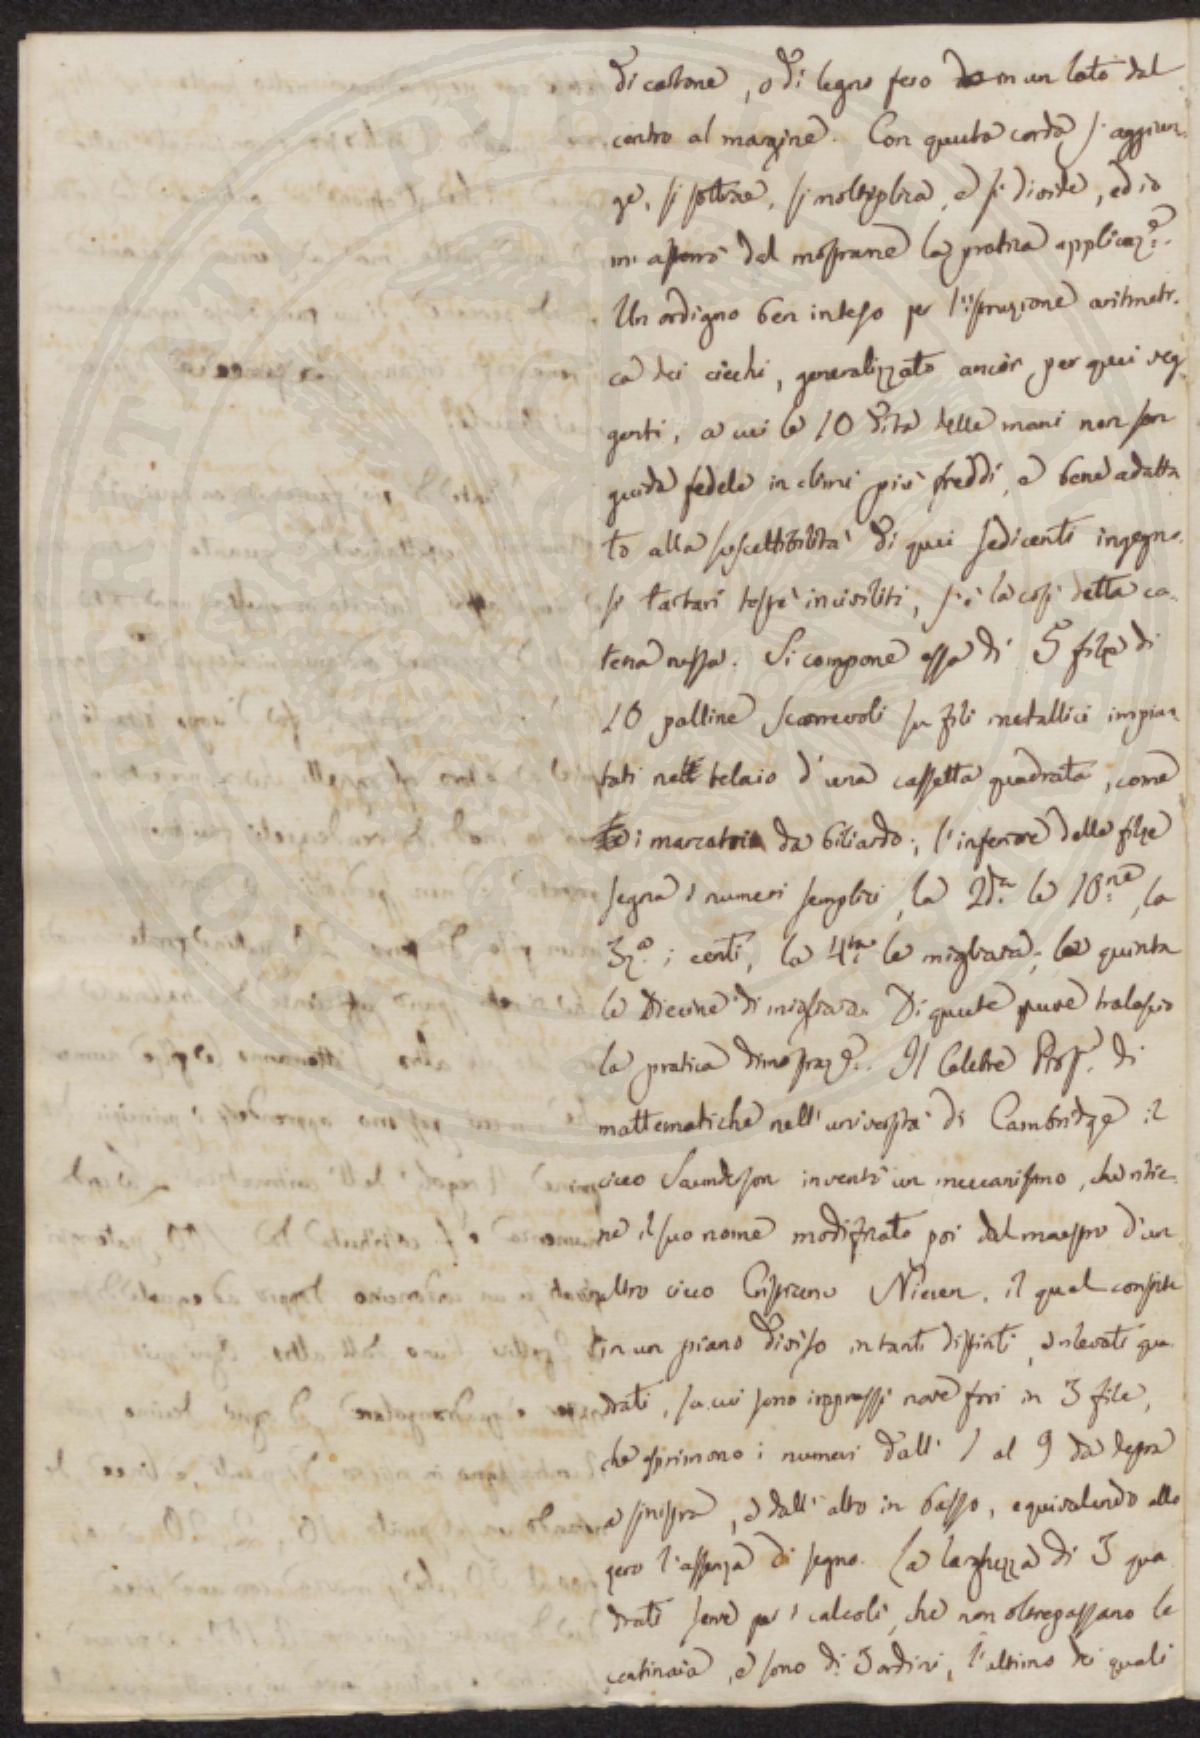 di cartone, o di legno feso in un lato dal
centro al margine. Con questa corda si aggiun-
ge, si sottrae, si moltiplica, e si divide, ed io
mi asterrò dal mostrarne la pratica applicaz.e.
Un ordigno ben inteso per l'istruzione aritmeti-
ca dei ciechi, generalizzato ancor per quei veg-
genti, a cui le 10 dita delle mani non son
guida fedele in climi più freddi, e bene adatta
to alla suscettibilità di quei sedicenti ingegno-
si tartari testè inciviliti, si è la così detta ca-
tena russa. Si compone essa di 5 filze di
10 palline scorrevoli su fili metallici impian
tati nel telaio d'una cassetta quadrata, come
i marcatoi da biliardo; l'inferiore delle filze
segna i numeri semplici, la 2da. le 10.ne, la
3za. i centi, la 4ta. le migliara; la quinta
le diecine di migliara. Di queste pure tralascio
la pratica dimostraz.e. Il Celebre Prof. di
mattematiche nell'università di Cambridge il
cieco Saunderson inventò un meccanismo, che ritie-
ne il suo nome modificato poi dal maestro d'un
altro cieco Cristiano Niesen, il qual consiste
in un piano diviso in tanti distinti, e rilevati qua-
drati, su cui sono impressi nove fori in 3 file,
che esprimono i numeri dall' 1 al 9 da destra
a sinistra, e dall'alto in basso, equivalendo allo
zero l'assenza di segno. La larghezza di 3 qua
drati serve per i calcoli, che non oltrepassano le
centinaia, e sono di 3 ordini, l'ultimo dei quali